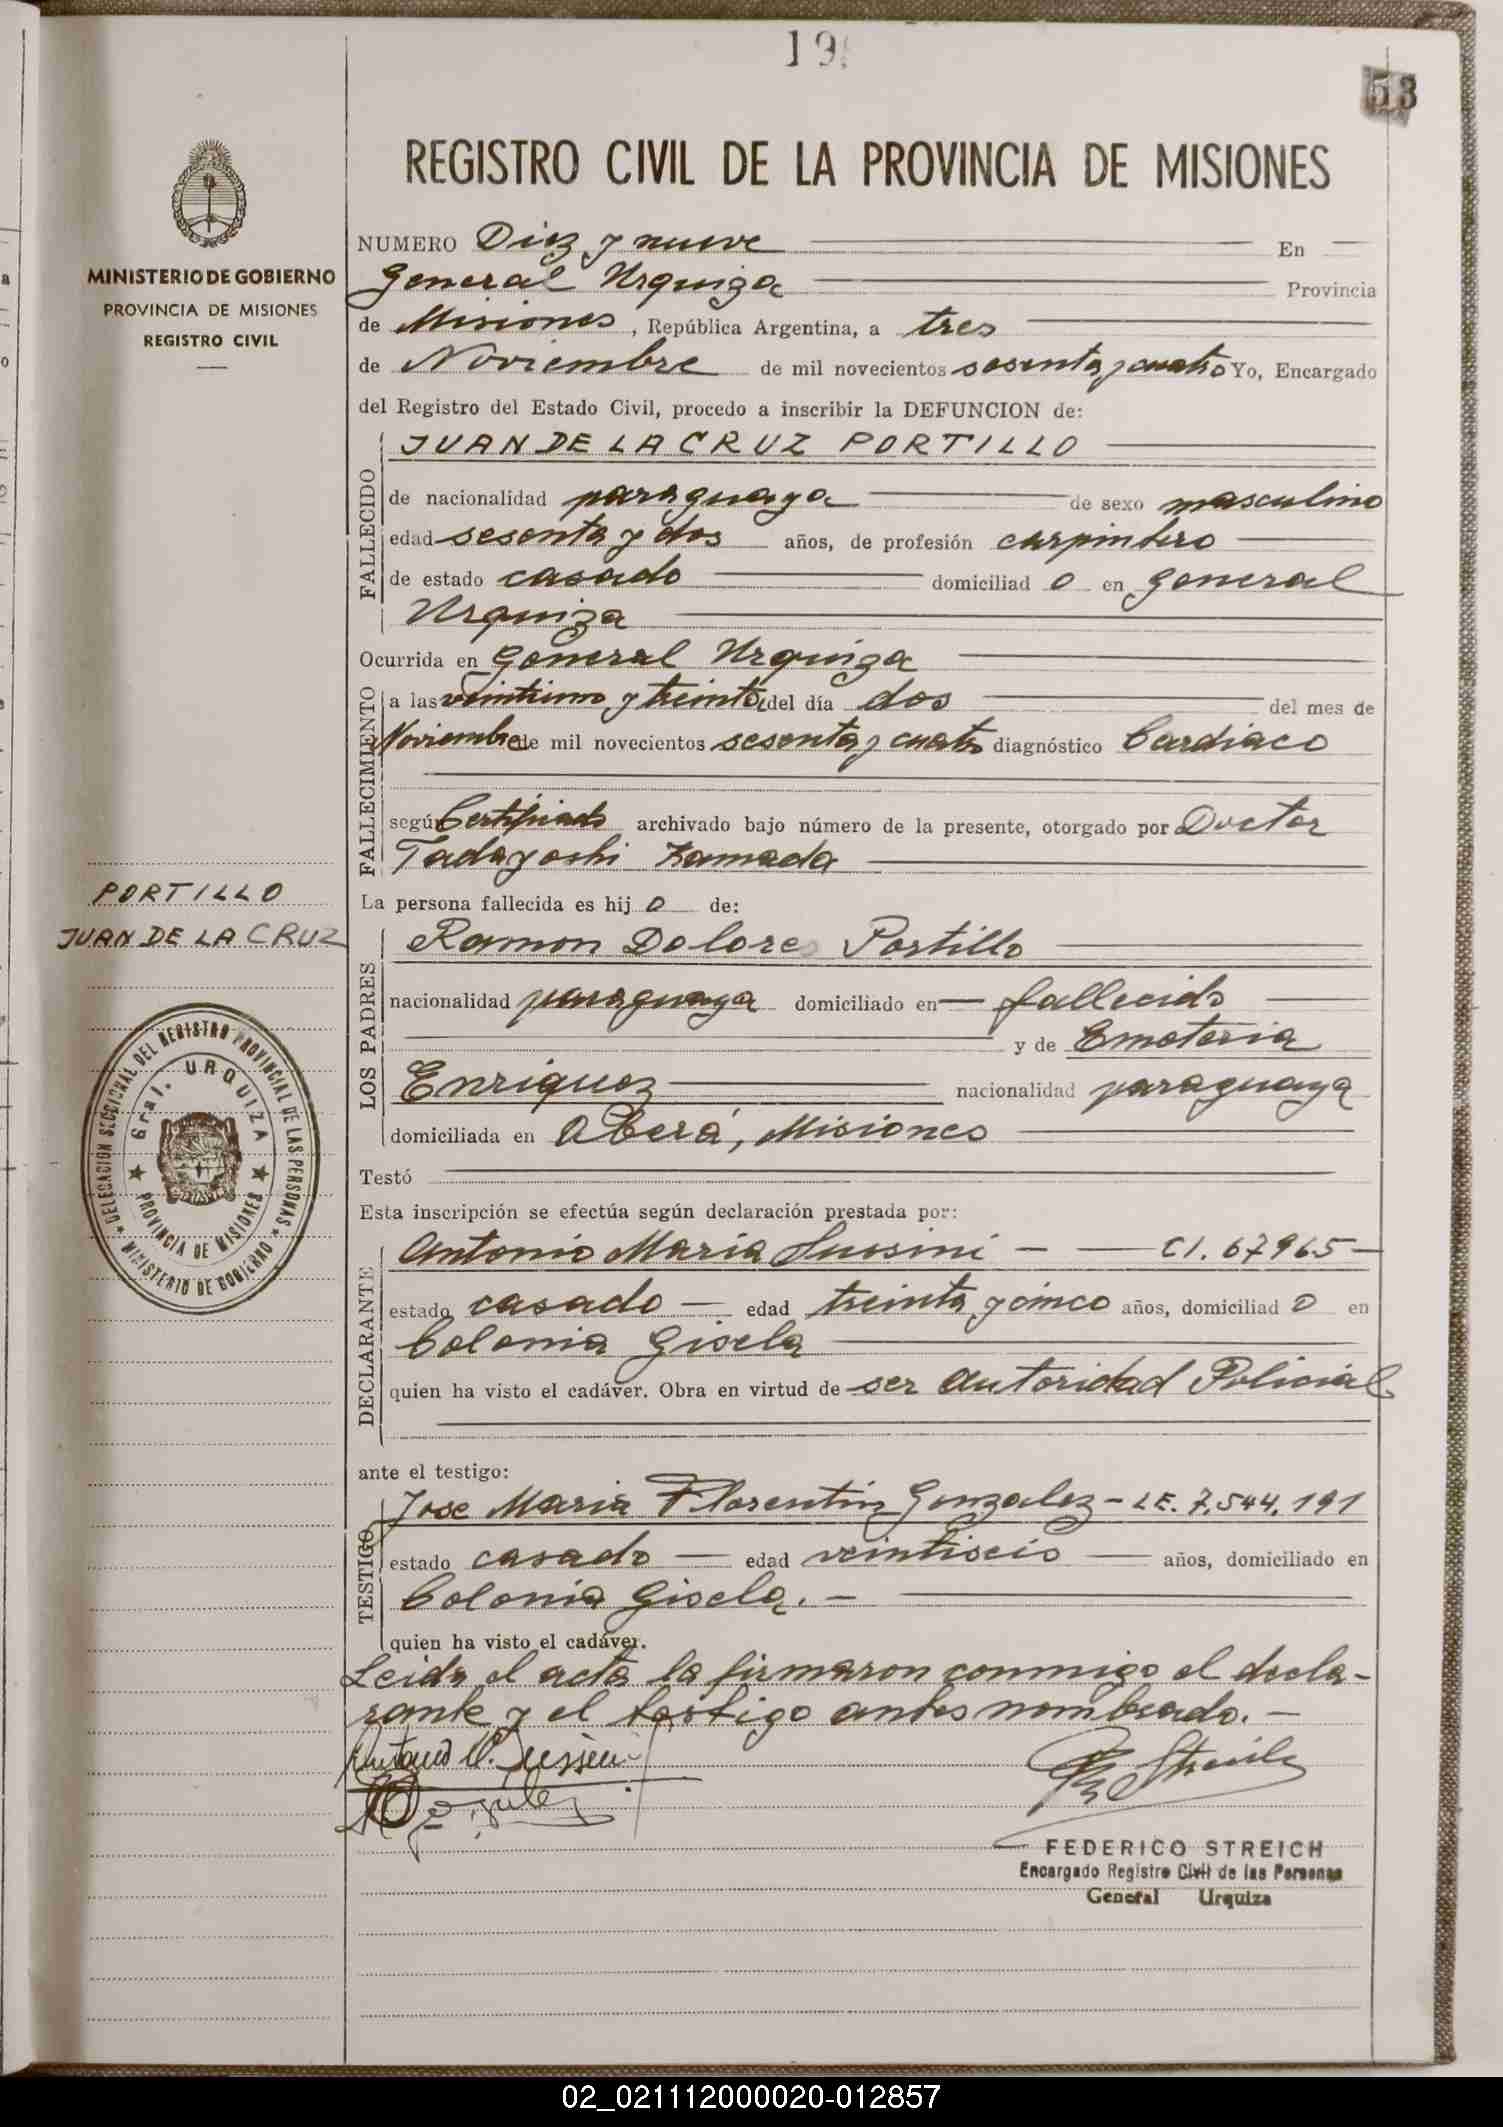 19
53
REGISTRO CIVIL DE LA PROVINCIA DE MISIONES
MINISTERIO DE GOBIERNO
PROVINCIA DE MISIONES
REGISTRO CIVIL
NUMERO Diez y nueve En
General Urquiza Provincia
de Misiones, República Argentina, a tres
de Noviembre de mil novecientos sesenta y cuatro Yo, Encargado
del Registro del Estado Civil, procedo a inscribir la DEFUNCION de:
FALLECIDO
JUAN DE LA CRUZ PORTILLO
de nacionalidad paraguaya de sexo masculino
edad sesenta y dos años, de profesión carpintero
de estado casado domiciliad o en General
Urquiza
Ocurrida en General Urquiza
FALLECIMIENTO
a las veintiuno y treinta del día dos del mes de
Noviembre de mil novecientos sesenta y cuatro diagnóstico Cardiaco
según Certificado archivado bajo número de la presente, otorgado por Doctor
Tadayoshi Kamada
PORTILLO
JUAN DE LA CRUZ
La persona fallecida es hij o de:
LOS PADRES
Ramon Dolores Portillo
nacionalidad paraguaya domiciliado en — fallecido
y de Emeteria
Enriquez nacionalidad paraguaya
domiciliada en Oberá, Misiones
DELEGACION SECCIONAL DEL REGISTRO PROVINCIAL DE LAS PERSONAS
Gral. URQUIZA
PROVINCIA DE MISIONES
MINISTERIO DE GOBIERNO
Testó
Esta inscripción se efectúa según declaración prestada por:
DECLARANTE
Antonio Maria Sussini — — CI. 67965 —
estado casado — edad treinta y cinco años, domiciliad o en
Colonia Gisela
quien ha visto el cadáver. Obra en virtud de ser Autoridad Policial
ante el testigo:
TESTIGO
Jose Maria Florentin Gonzalez - LE. 7.544.191
estado casado — edad veintiseis — años, domiciliado en
Colonia Gisela. —
quien ha visto el cadáver.
Leida el acta la firmaron conmigo el decla-
rante y el testigo antes nombrado. —
Antonio M. Sussini
FEDERICO STREICH
Encargado Registro Civil de las Personas
General Urquiza
02_021112000020-012857